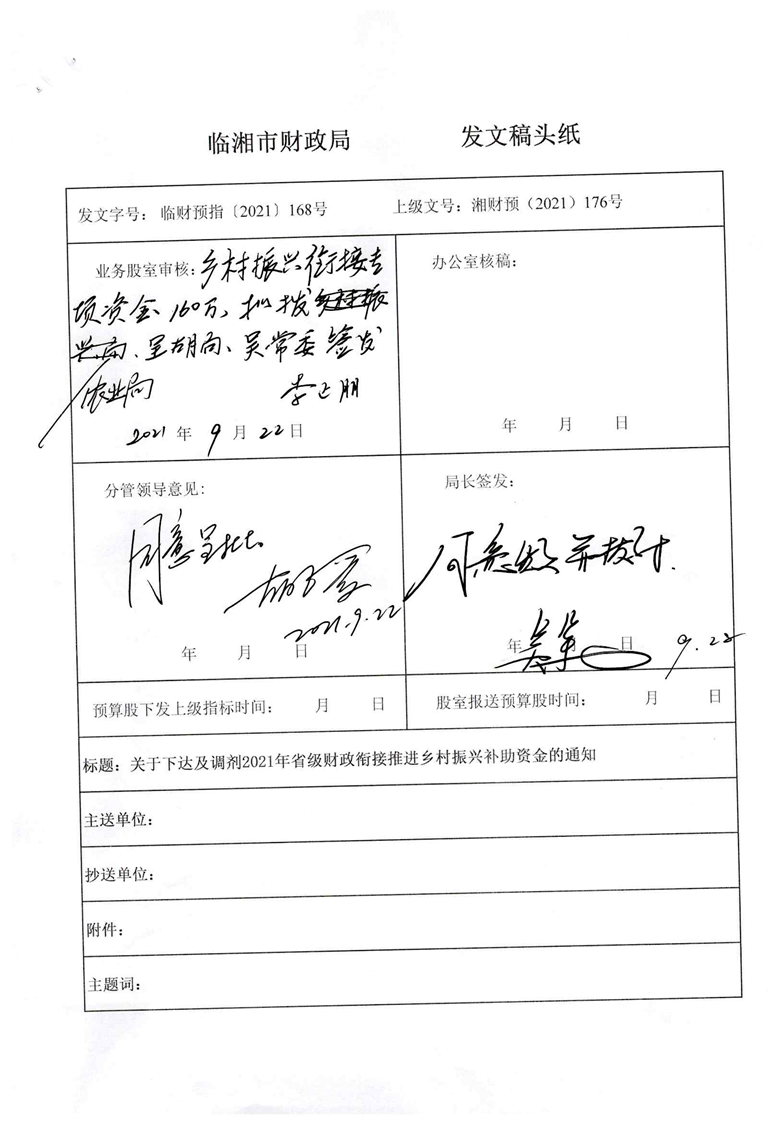 临湘市财政局 发文稿头纸
发文字号：临财预指〔2021〕168号 上级文号：湘财预（2021）176号
业务股室审核：乡村振兴衔接专
项资金160万，拟拨乡村振
兴局、呈胡局、吴常委签发
农业局 李正朋
2021年9月22日
办公室核稿：
年 月 日
分管领导意见：
同意呈批
2021.9.22
年 月 日
局长签发：
年 日 9.22
预算股下发上级指标时间： 月 日
股室报送预算股时间： 月 日
标题：关于下达及调剂2021年省级财政衔接推进乡村振兴补助资金的通知
主送单位：
抄送单位：
附件：
主题词：